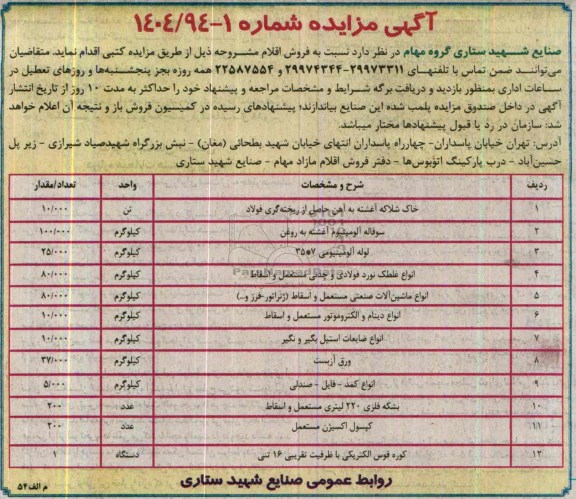 آگهی مزایده شماره ۱-۱۴۰۴/۹۴
صنایع شهید ستاری گروه مهام در نظر دارد نسبت به فروش اقلام مشروحه ذیل از طریق مزایده کتبی اقدام نماید. متقاضیان
می‌توانند ضمن تماس با تلفنهای ۲۹۹۷۳۳۱۱-۲۹۹۷۴۳۴۴ و ۲۲۵۸۷۵۵۴ همه روزه بجز پنجشنبه‌ها و روزهای تعطیل در
ساعات اداری بمنظور بازدید و دریافت برگه شرایط و مشخصات مراجعه و پیشنهاد خود را حداکثر به مدت ۱۰ روز از تاریخ انتشار
آگهی در داخل صندوق مزایده پلمب شده این صنایع بیاندازند؛ پیشنهادهای رسیده در کمیسیون فروش باز و نتیجه آن اعلام خواهد
شد: سازمان در رد یا قبول پیشنهادها مختار میباشد.
آدرس: تهران خیابان پاسداران- چهارراه پاسداران انتهای خیابان شهید بطحائی (مغان) - نبش بزرگراه شهیدصیاد شیرازی - زیر پل
حسین‌آباد - درب پارکینگ اتوبوس‌ها - دفتر فروش اقلام مازاد مهام - صنایع شهید ستاری
ردیف شرح و مشخصات واحد تعداد/مقدار
۱ خاک شلاکه آغشته به آهن حاصل از ریخته‌گری فولاد تن ۱۰/۰۰۰
۲ سوفاله آلومینیوم آغشته به روغن کیلوگرم ۱۰۰/۰۰۰
۳ لوله آلومینیومی ۷*۳۵ کیلوگرم ۲۵/۰۰۰
۴ انواع غلطک نورد فولادی و چدنی مستعمل و اسقاط کیلوگرم ۸۰/۰۰۰
۵ انواع ماشین‌آلات صنعتی مستعمل و اسقاط (ژنراتور-فرز و...) کیلوگرم ۸۰/۰۰۰
۶ انواع دینام و الکتروموتور مستعمل و اسقاط کیلوگرم ۱۰/۰۰۰
۷ انواع ضایعات استیل بگیر و نگیر کیلوگرم ۱۰/۰۰۰
۸ ورق آزبست کیلوگرم ۳۷/۰۰۰
۹ انواع کمد - فایل - صندلی کیلوگرم ۵/۰۰۰
۱۰ بشکه فلزی ۲۲۰ لیتری مستعمل و اسقاط عدد ۲۰۰
۱۱ کپسول اکسیژن مستعمل عدد ۲۰۰
۱۲ کوره قوس الکتریکی با ظرفیت تقریبی ۱۶ تنی دستگاه ۱
روابط عمومی صنایع شهید ستاری
م الف۵۴